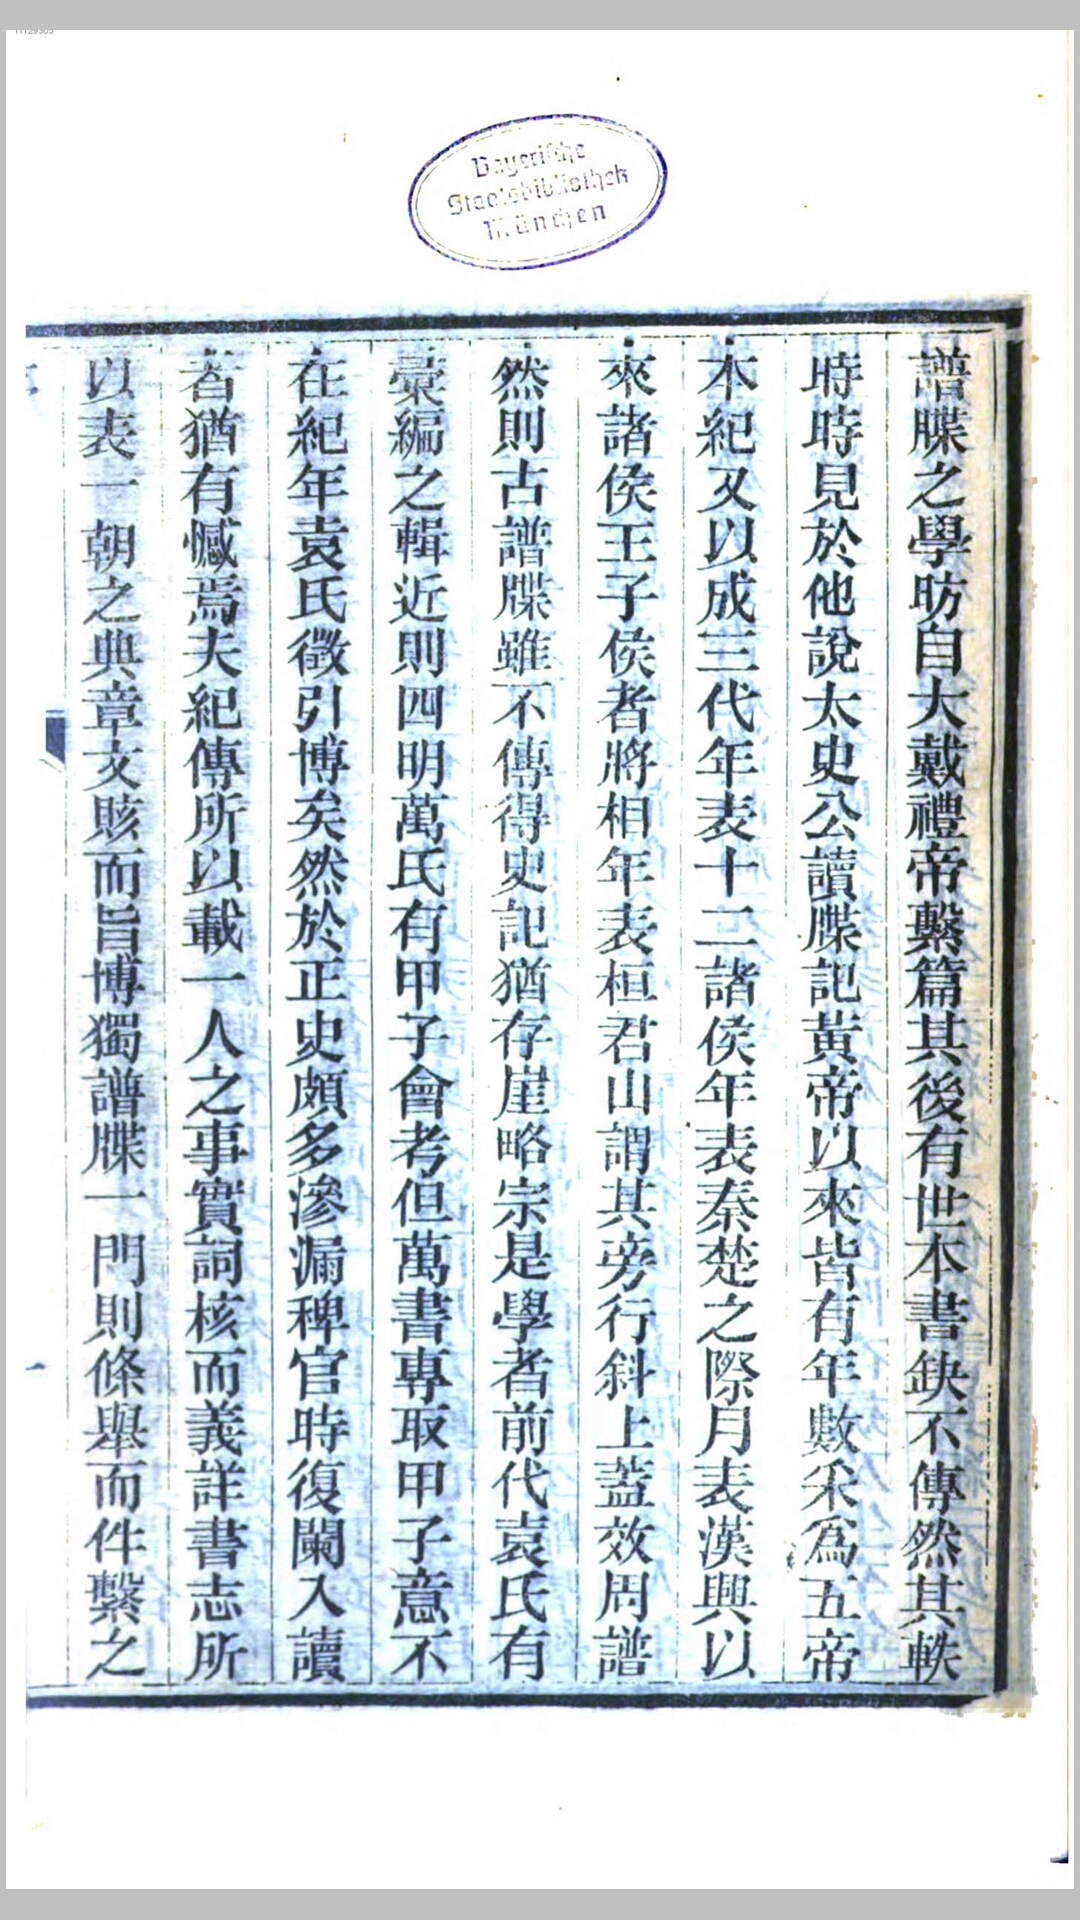 11129305
Bayerische
Staatsbibliothek
München
譜牒之學昉自大戴禮帝繫篇其後有世本書缺不傳然其軼
時時見於他說太史公讀牒記黃帝以來皆有年數釆爲五帝
本紀又以成三代年表十二諸侯年表秦楚之際月表漢興以
來諸侯王子侯者將相年表桓君山謂其旁行斜上蓋效周譜
然則古譜牒雖不傳得史記猶存崖略宗是學者前代袁氏有
彙編之輯近則四明萬氏有甲子會考但萬書專取甲子意不
在紀年袁氏徵引博矣然於正史頗多滲漏稗官時復闌入讀
者猶有憾焉夫紀傳所以載一人之事實詞核而義詳書志所
以表一朝之典章文賅而旨博獨譜牒一門則條舉而件繫之